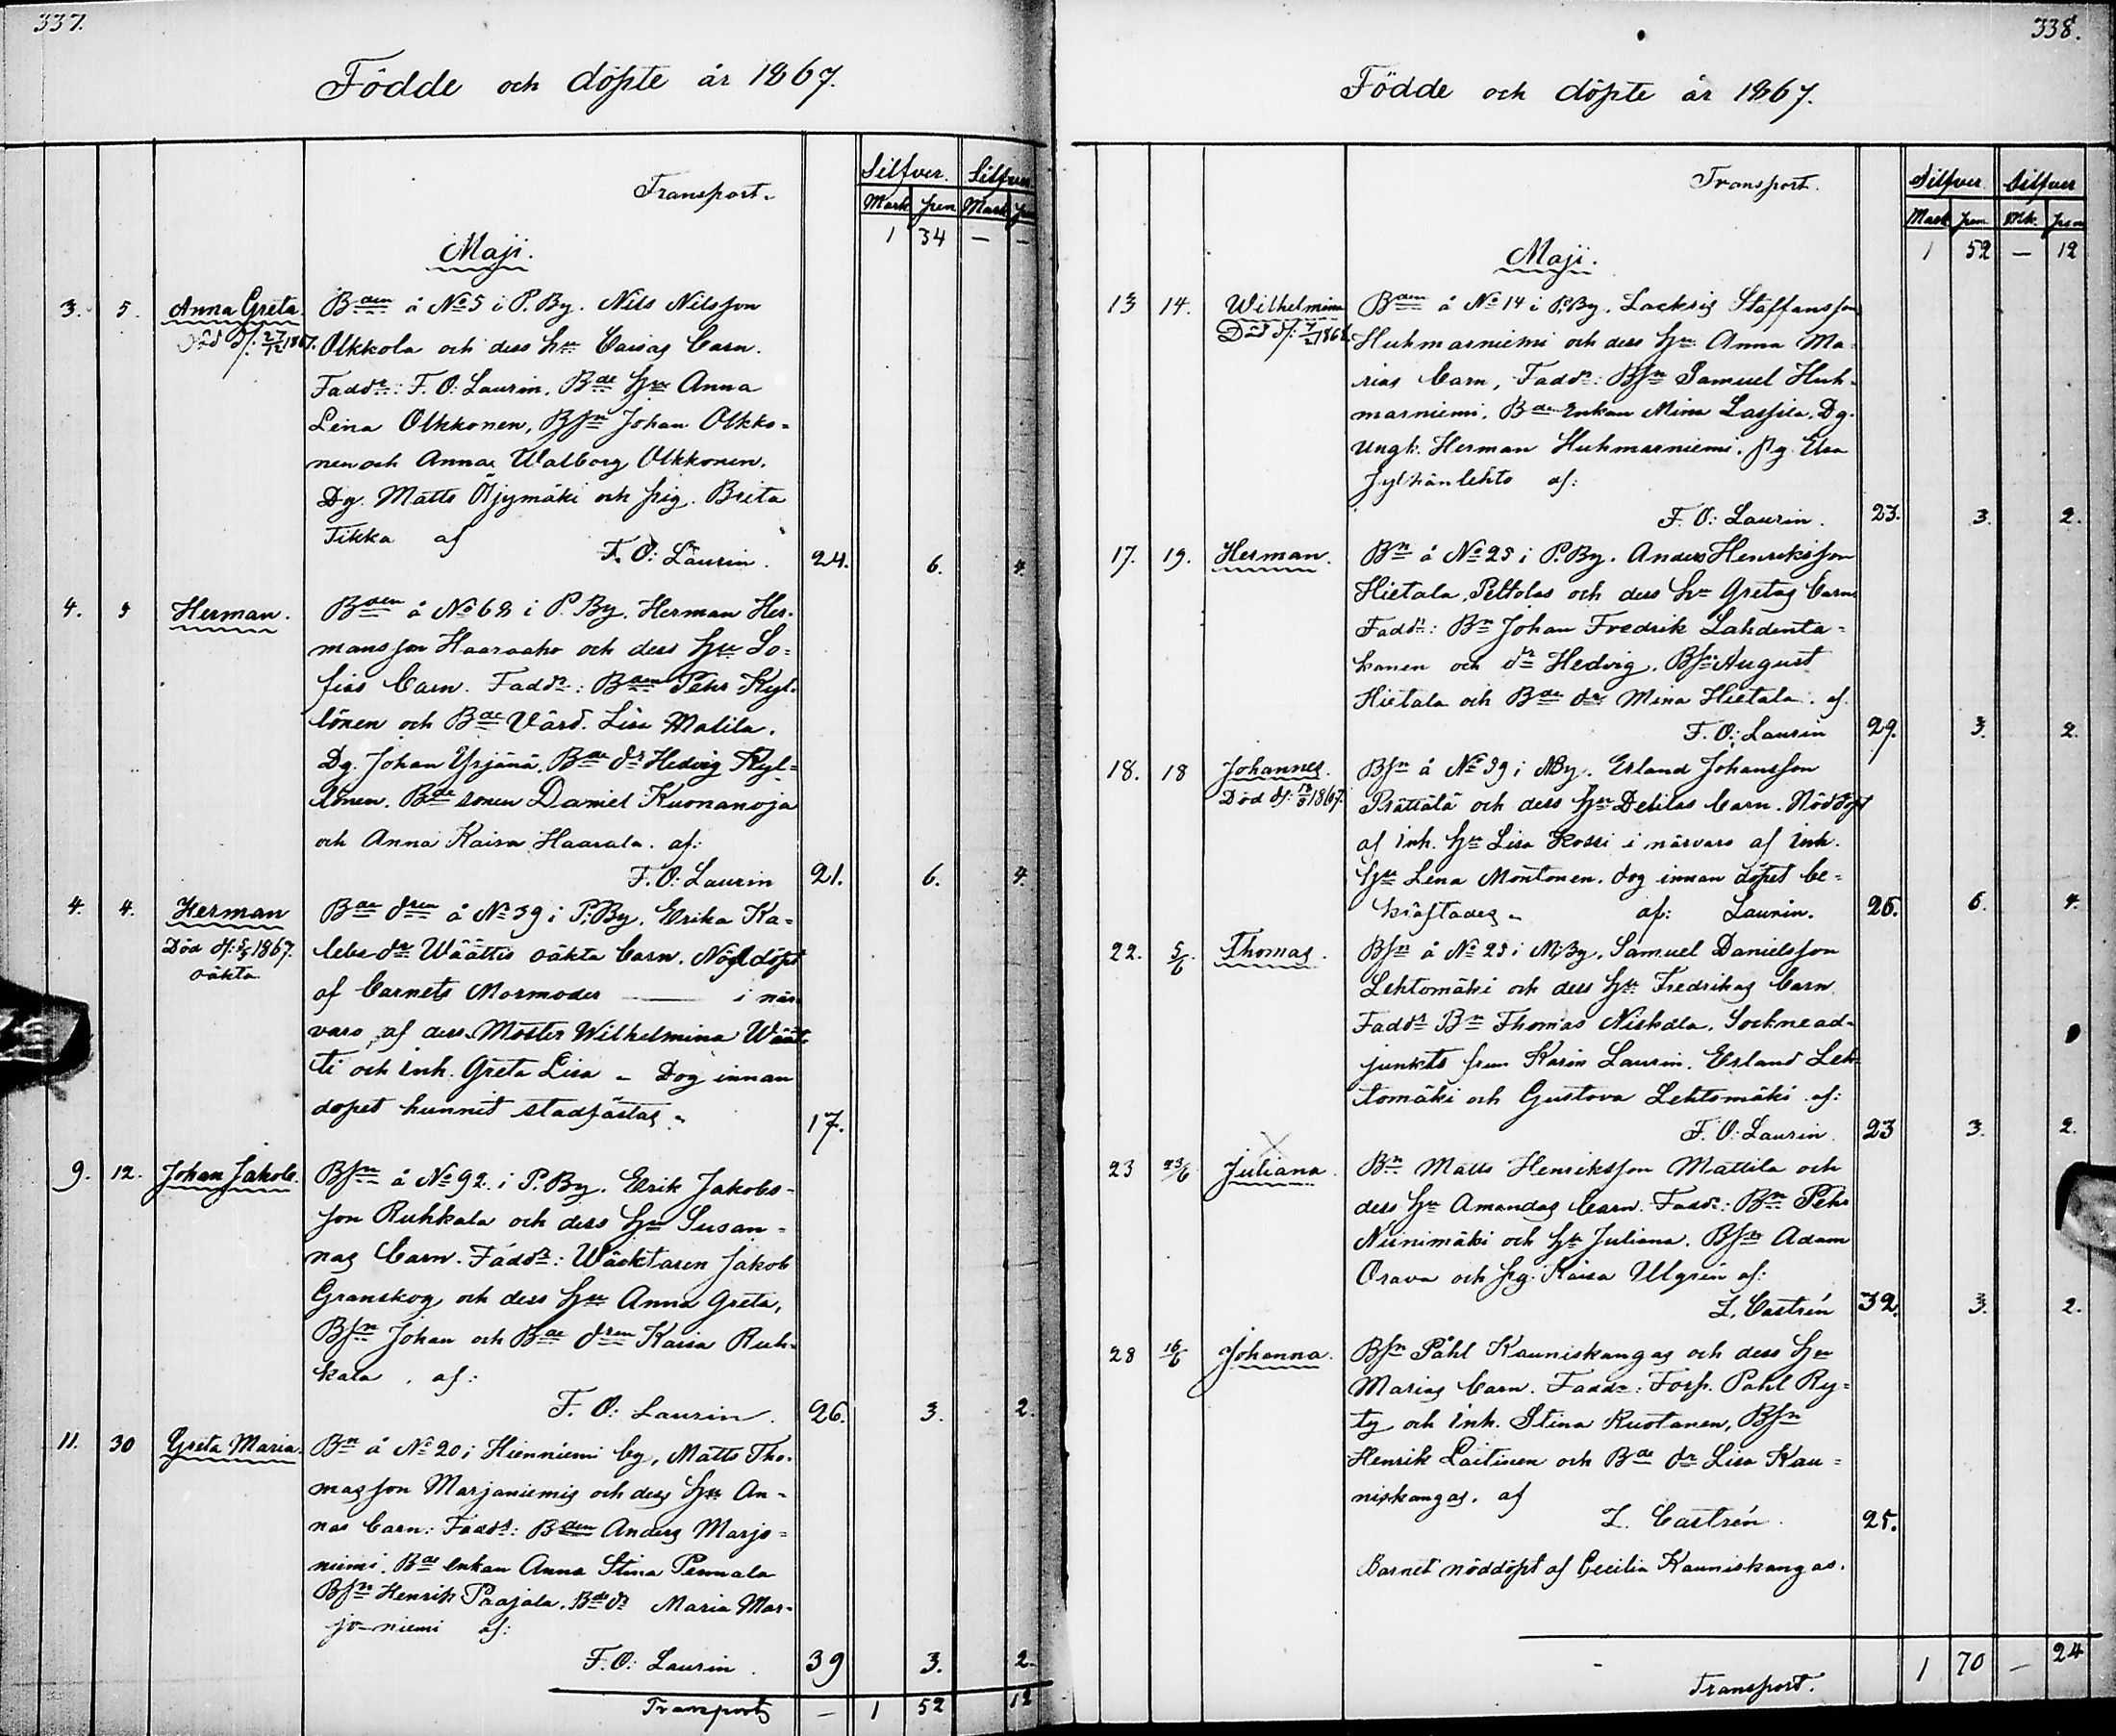 337.
Födde och döpte år 1867.
Transport.
Silfver. Silfver.
Mark pen Mark pen
1 34 — —
Maji.
3. 5. Anna Greta. Bden å No 5 i P. By. Nils Nilsson
Död d: 27/12 1867. Olkkola och dess hu Caisas barn.
Faddr: F. O: Laurin. Bde hu Anna
Lena Olkkonen, Bsn Johan Olkko-
nen och Anna Walborg Olkkonen.
Dg. Matts Öjymäki och pig. Brita
Tikka af
F. O: Laurin. 24. 6. 4.
4. 5 Herman. Bden å No 68 i P. By. Herman Her-
mansson Haaraaho och dess hu So-
fias barn. Faddr: Bden Pehr Kyl-
lönen och Bde Värd. Lisa Matila.
Dg. Johan Yrjänä. Bde dr Hedvig Kyl-
lönen. Bde sonen Daniel Kuonanoja
och Anna Kaisa Haarala. af:
F. O: Laurin 21. 6. 4.
4. 4. Herman Bde dren å No 39 i P. By. Erika Ka-
Död d: 5/5 1867. lebs dr Wäättis oäkta barn. Nöddöpt
oäkta af barnets Mormoder — i när-
varo af dess Moster Wilhelmina Wäät-
ti och Inh. Greta Lisa - Dog innan
dopet hunnit stadfästas. 17.
9. 12. Johan Jakob. Bsn å No 92 i P. By. Erik Jakobs-
son Ruhkala och dess hu Susan-
nas barn. Faddr: Wäcktaren Jakob
Granskog och dess hu Anna Greta,
Bsn Johan och Bde dren Kaisa Ruh-
kala. af:
F. O: Laurin. 26. 3. 2.
11. 30 Greta Maria. Bn å No 20 i Hienniemi by, Matts Tho-
masson Marjaniemis och dess hu An-
nas barn: Faddr: Bden Anders Marjo-
niemi. Bde enkan Anna Stina Pennala
Bsn Henrik Paajala. Bde dr Maria Mar-
jo-niemi af:
F. O: Laurin. 39 3. 2.
Transport — 1 52 12
338.
Födde och döpte år 1867.
Transport.
Silfver. Silfver
Mark pen Mk. pen
1 52 — 12
Maji.
13 14. Wilhelmina Bden å No 14 i P. By. Lackris Staffansson
Död d: 1868. Huhmarniemi och dess hu Anna Ma-
rias barn, Faddr: Bsn Samuel Huh-
marniemi. Bde Enkan Mina Lassila. Dg.
Ungk. Herman Huhmarniemi. pg. Ulla
Jylhänlehto af:
F. O: Laurin. 23. 3. 2.
17. 19. Herman. Bn å No 25 i P. By. Anders Henriksson
Hietala, Peltolas och dess hu Gretas barn
Faddr: Bn Johan Fredrik Lahdenta-
kanen och dr Hedvig. Bsn August
Hietala och Bde dr Mina Hietala. af.
F. O: Laurin 29. 3. 2.
18. 18 Johannes. Bsn å No 39 i MBy. Erland Johansson
Död d: 1867. Prättälä och dess hu Delilas barn. Nöddöpt
af inh. hu Lisa Kossi i närvaro af inh.
hu Lena Montonen. dog innan döpet be-
kräftades. af: Laurin. 26. 6. 4.
22. 5/6. Thomas. Bsn å No 25 i M. By. Samuel Danielsson
Lehtomäki och dess hu Fredrikas barn
Faddr Bn Thomas Niskala. Sockne ad-
junkts frun Karin Laurin. Erland Leh-
tomäki och Gustova Lehtomäki af:
F. O: Laurin. 23 3. 2.
23 23/6 Juliana. Bn Matts Henriksson Mattila och
dess hu Amandas barn. Faddr: Bn Pehr
Niinimäki och hu Juliana. Bsn Adam
Orava och pg. Kaisa Ulgrén af:
L. Castrén 32. 3. 2.
28 16/6 Johanna. Bsn Påhl Kauniskangas och dess hu
Marias barn. Faddr: Torp. Påhl Ry-
ty och inh. Stina Ruotanen, Bsn
Henrik Laitinen och Bde dr Lisa Kau-
niskangas. af
L. Castrén. 25.
Barnet nöddöpt af Cecilia Kauniskangas.
Transport. 1 70 — 24